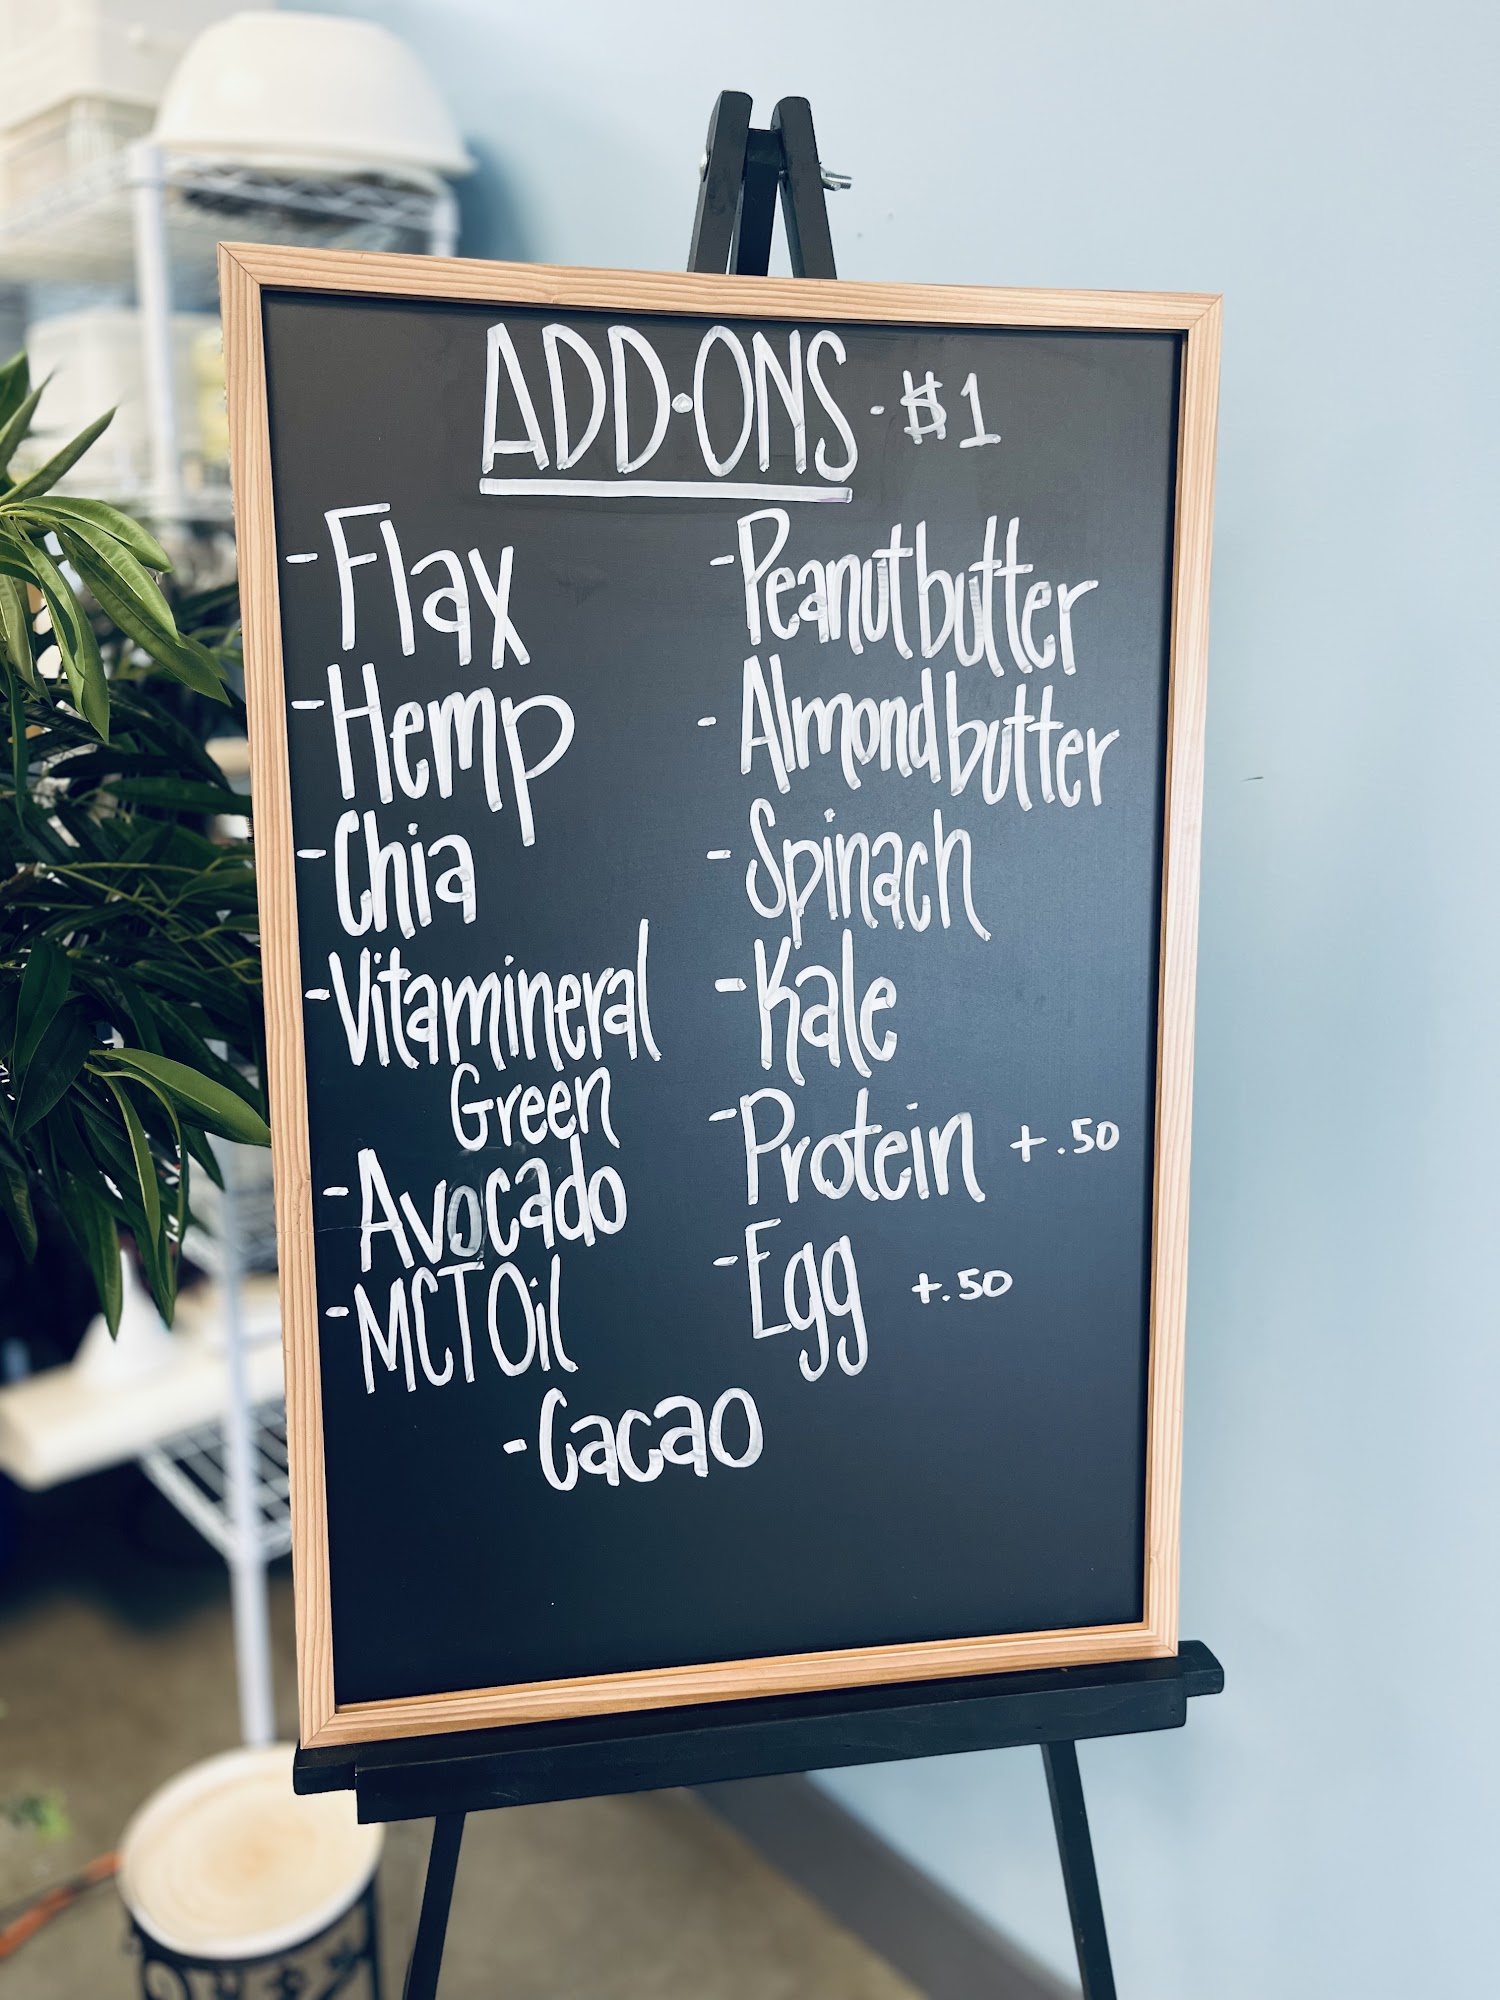 ADD·ONS - $1
- Flax
- Hemp
- Chia
- Vitamineral
Green
- Avocado
- MCT Oil
- Peanut butter
- Almond butter
- Spinach
- Kale
- Protein +.50
- Egg +.50
- Cacao